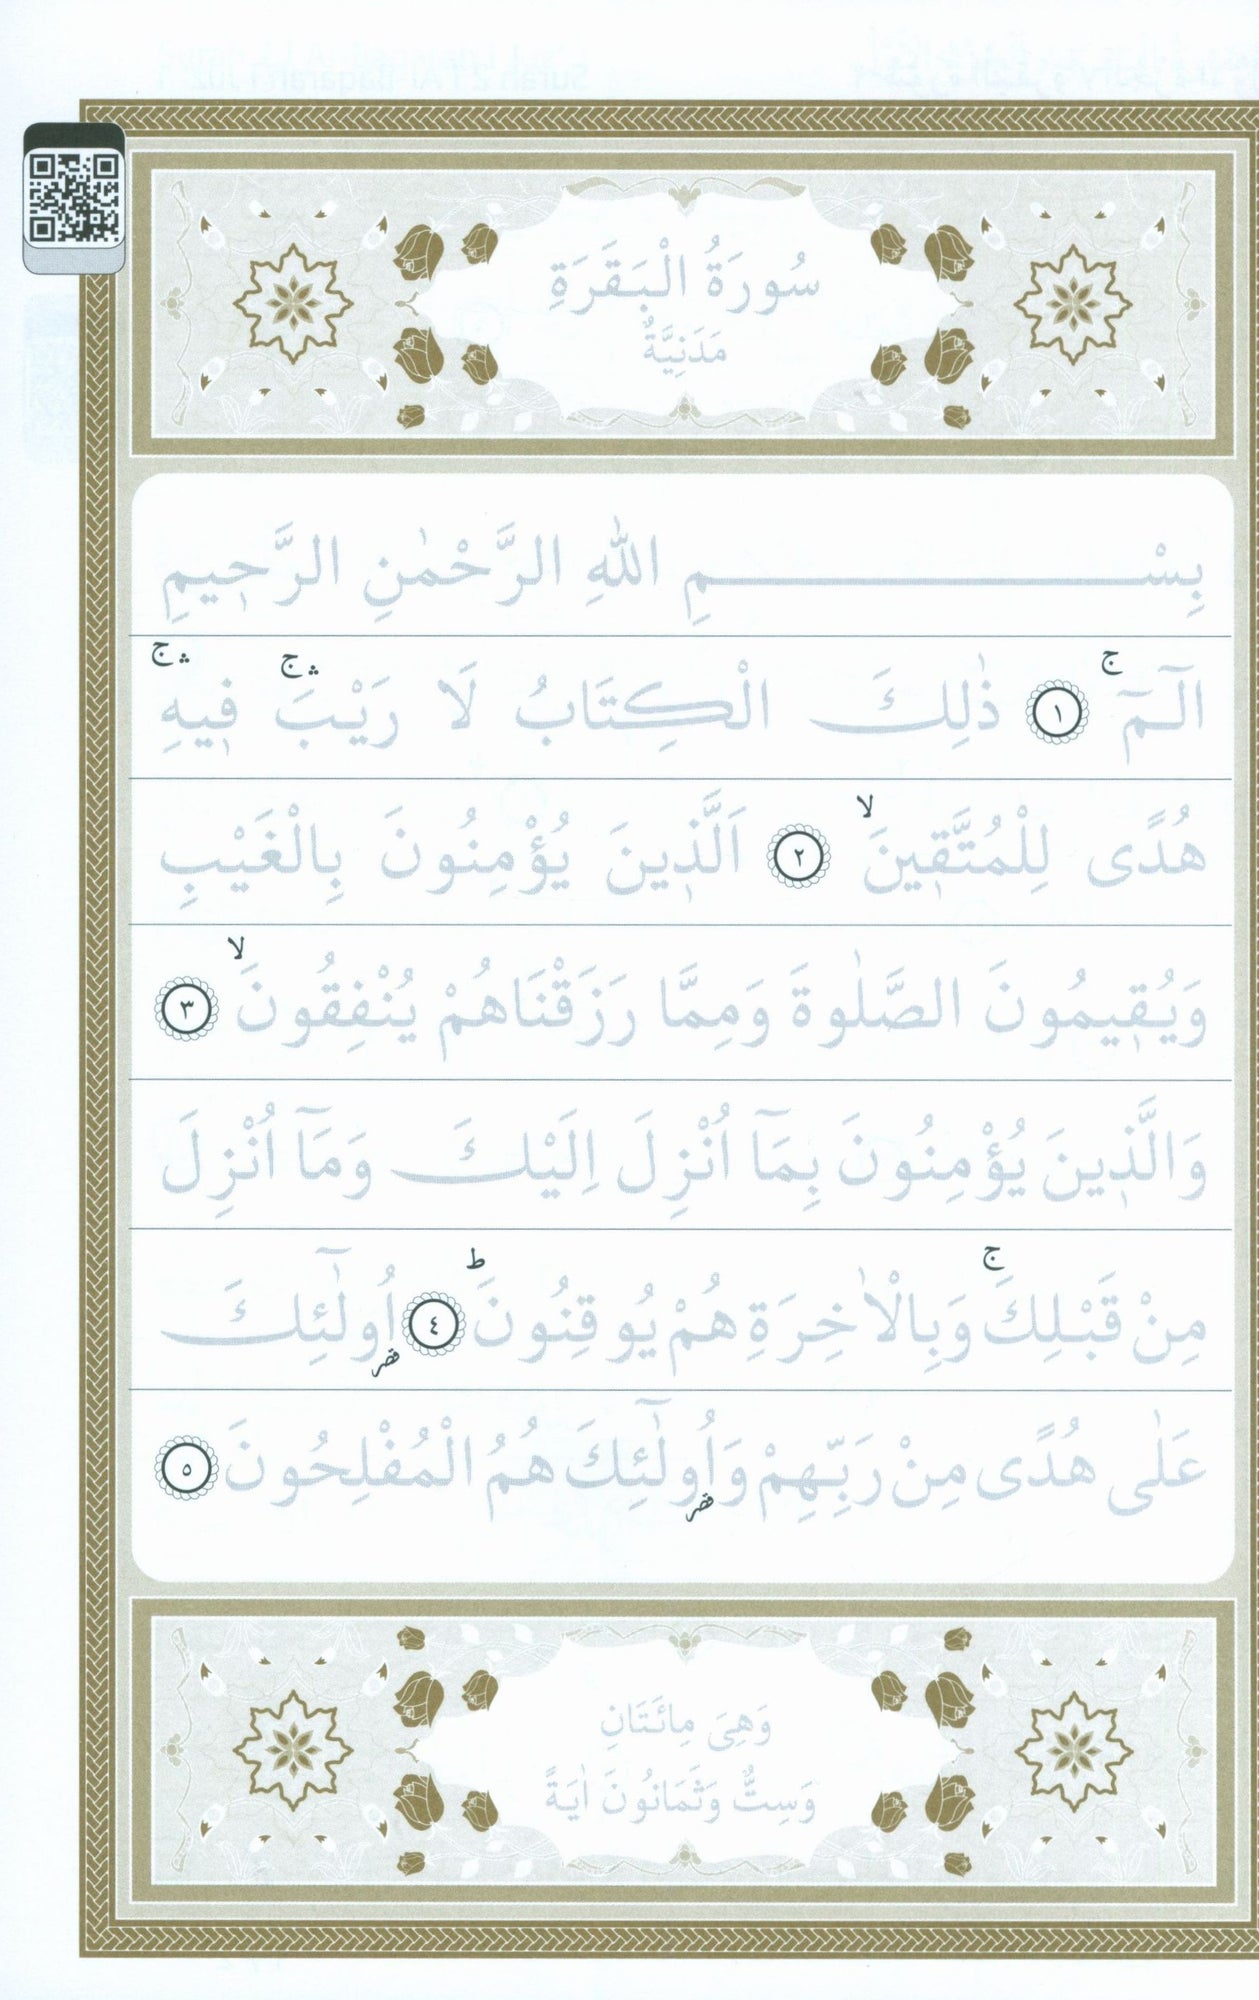 سُورَةُ الْبَقَرَةِ
مَدَنِيَّةٌ
بِسْمِ اللّٰهِ الرَّحْمٰنِ الرَّحٖيمِ
الٓمٓ ۚ ﴿١﴾ ذٰلِكَ الْكِتَابُ لَا رَيْبَ ۛۚ فٖيهِ ۛۚ
هُدًى لِلْمُتَّقٖينَ ۙ ﴿٢﴾ اَلَّذٖينَ يُؤْمِنُونَ بِالْغَيْبِ
وَيُقٖيمُونَ الصَّلٰوةَ وَمِمَّا رَزَقْنَاهُمْ يُنْفِقُونَ ۙ ﴿٣﴾
وَالَّذٖينَ يُؤْمِنُونَ بِمَٓا اُنْزِلَ اِلَيْكَ وَمَٓا اُنْزِلَ
مِنْ قَبْلِكَ ۚ وَبِالْاٰخِرَةِ هُمْ يُوقِنُونَ ؕ ﴿٤﴾ اُو۬لٰٓئِكَ قصر
عَلٰى هُدًى مِنْ رَبِّهِمْ وَاُو۬لٰٓئِكَ قصر هُمُ الْمُفْلِحُونَ ﴿٥﴾
وَهِيَ مِائَتَانِ
وَسِتٌّ وَثَمَانُونَ اٰيَةً